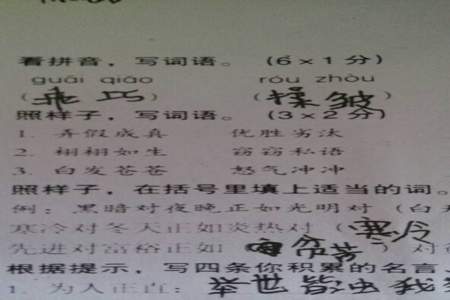 看拼音，写词语。（6×1分）
guāi qiǎo róu zhòu
（乖巧）（揉皱）
照样子，写词语。（3×2分）
1. 弄假成真 优胜劣汰
2. 栩栩如生 窃窃私语
3. 白发苍苍 怒气冲冲
照样子，在括号里填上适当的词。
例：黑暗对夜晚正如光明对（白
寒冷对冬天正如炎热对（寒冷
先进对富裕正如 对
根据提示，写四条你积累的名言
1. 为人正直： 举世皆浊我